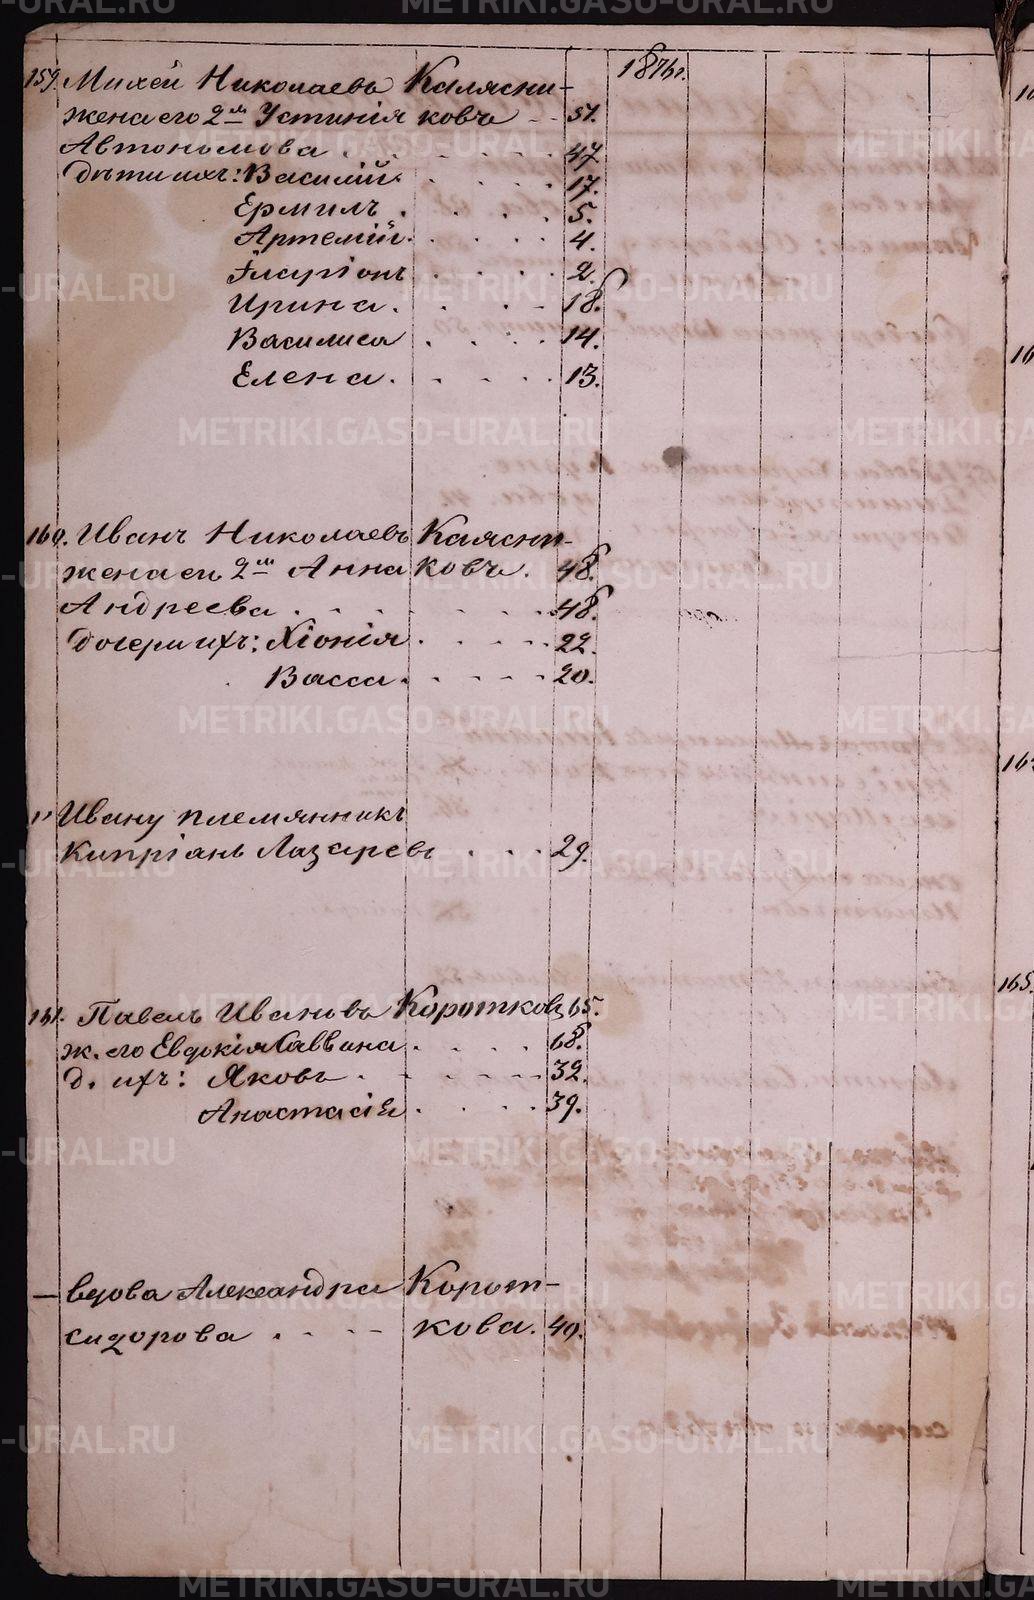 1876г.
159. Михей Николаевъ Калясни-
жена его 2мъ Устинія ковъ - - 57.
Автономова . - - - - - 47
Дѣти ихъ: Василій. . . . . 17.
Ермилъ . . . . 5.
Артемій . . . . 4.
Иларіонъ . . . . 2.
Ирина . . . . 18.
Василиса . . . . 14.
Елена . . . . 13.
160. Иванъ Николаевъ Калясни-
жена его 2мъ Анна ковъ . 48.
Андреева . - - - - - 48.
Дочери ихъ: Хіонія . - - - 22.
Васса . - - - - 20.
" Ивану племянникъ
Кипріанъ Лазаревъ . . . 29.
161. Павелъ Ивановъ Коротковъ 65.
ж. его Евдокія Саввина . . . . 68.
д. ихъ: Яковъ . - - - - - 32.
Анастасія . . . . 39.
— вдова Александра Корот-
Сидорова . . - - кова. 49.
METRIKI.GASO-URAL.RU